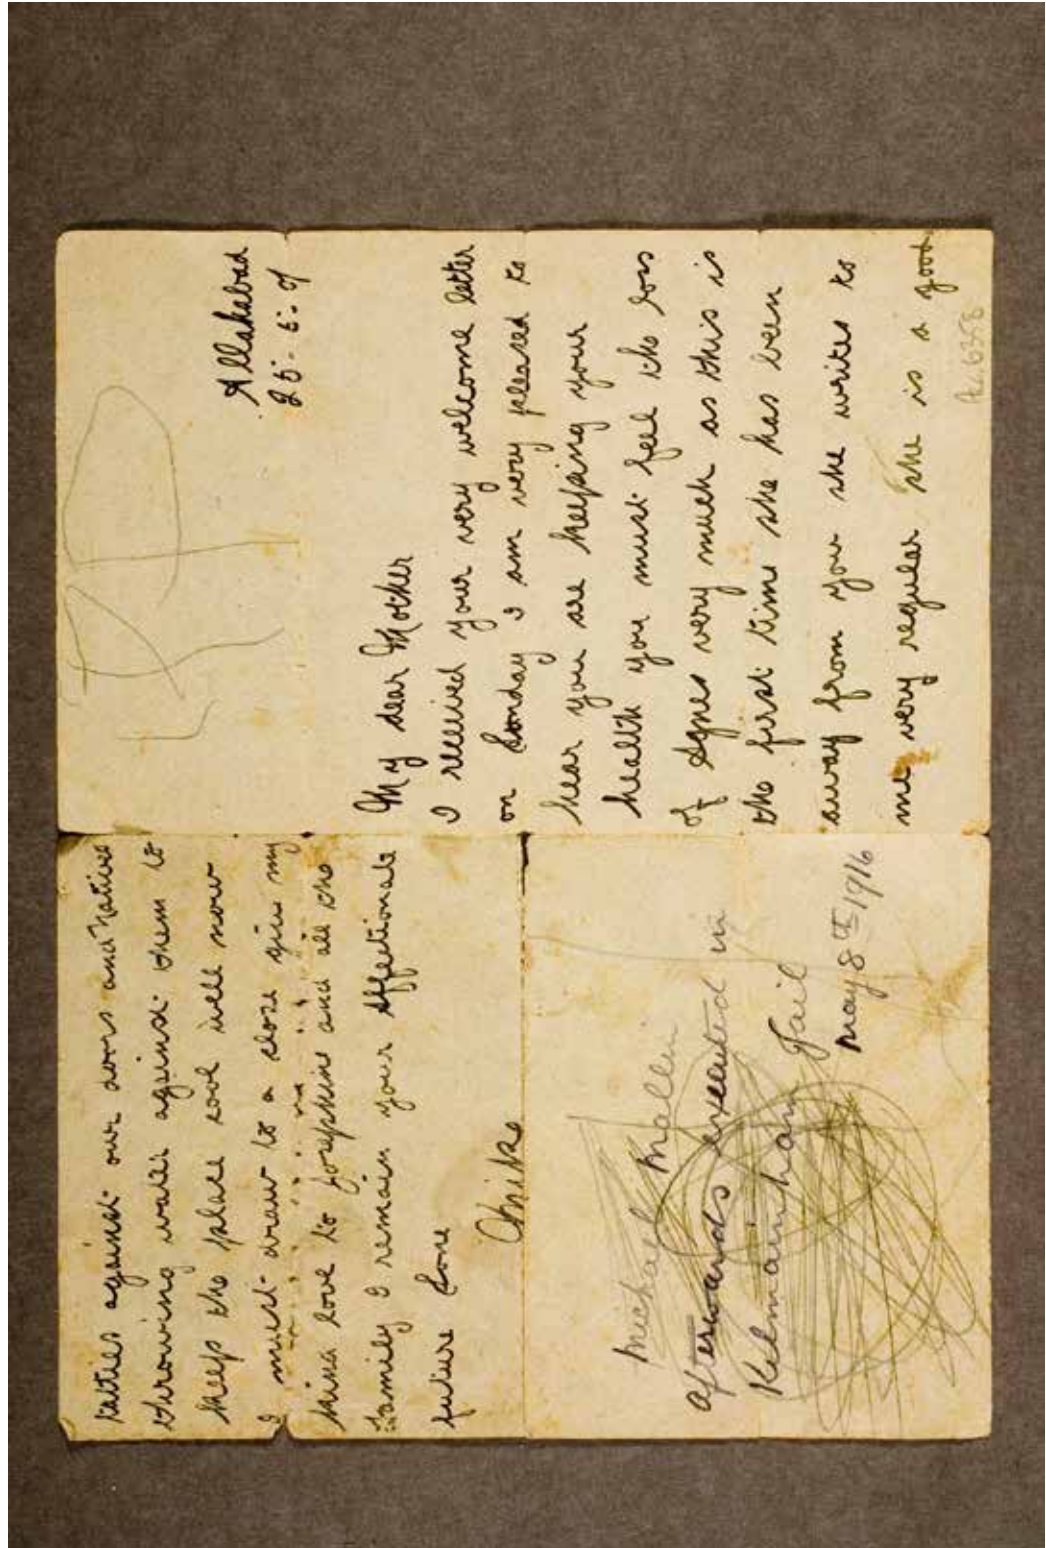 Allahabad
My dear Mother
I received your very welcome letter
on Sonday I am very pleased to
hear you are keeping your
health you must feel the loss
of Agnes very much as this is
the first time she has been
away from you she writes to
me very regular she is a good
tatties against our doors and natives
throwing water against them to
keep the place cool well now
I must draw to a close give my
kind love to Josephine and all the
family I remain your affectionate
future Sone
Mike
Michael Mallin
afterwards executed in
Kelmainham Jail
May 8th 1916
Ac. 6358